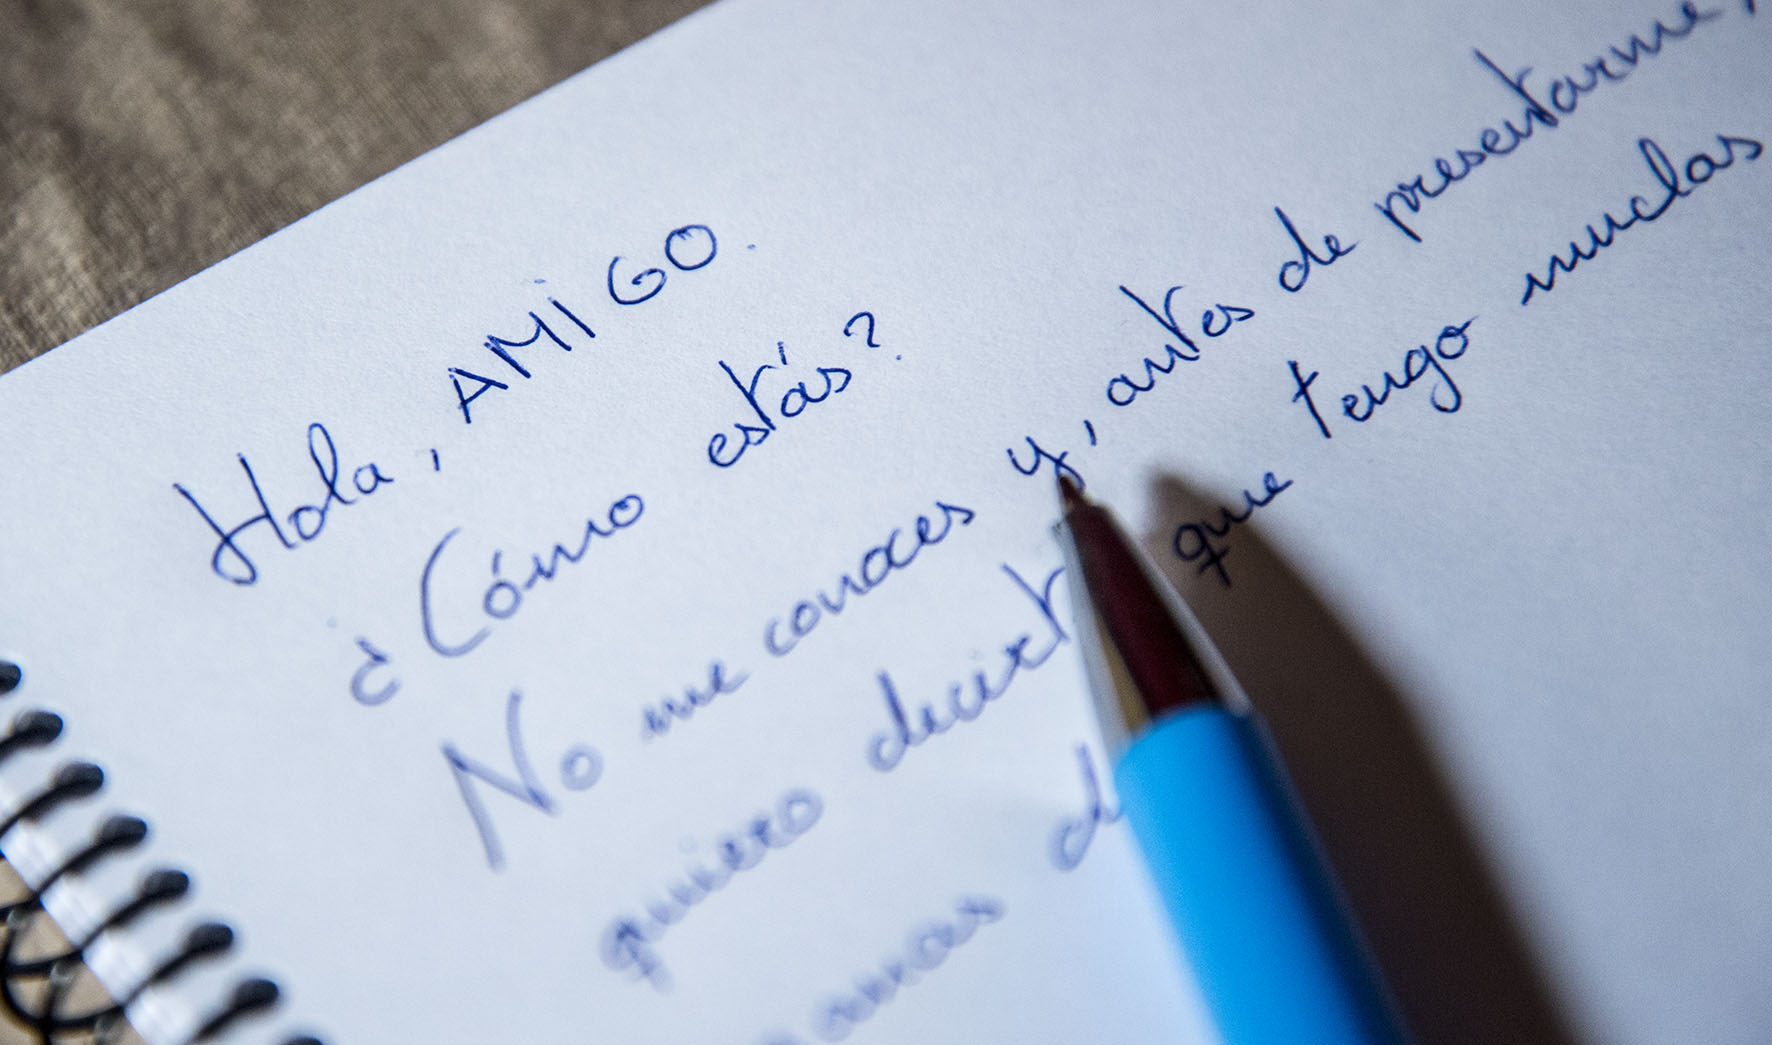 Hola, AMIGO.
¿Cómo estás?
No me conoces y, antes de presentarme,
quiero decirt que tengo muchas